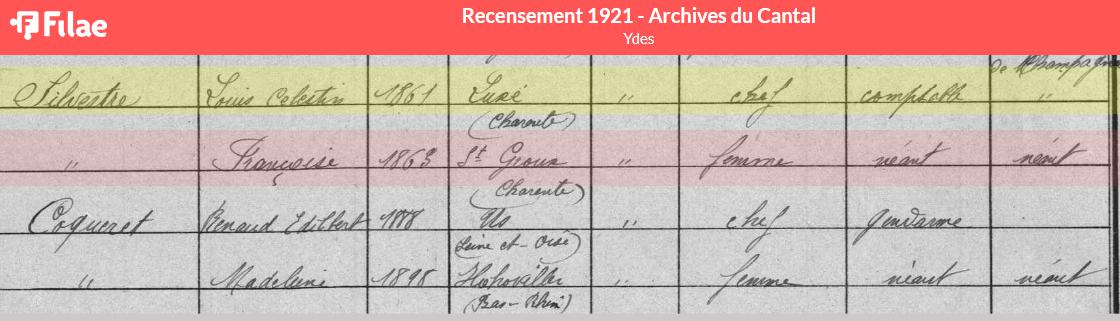 Filae
Recensement 1921 - Archives du Cantal
Ydes
de Champagnac
Silvestre Louis Celestin 1861 Luxé " chef comptable "
(Charente)
" Françoise 1863 St Groux " femme néant néant
(Charente)
Coqueret Renaud Edilbert 1888 Us " chef gendarme
(Seine et-Oise)
" Madeleine 1898 " femme néant néant
(Bas-Rhin)